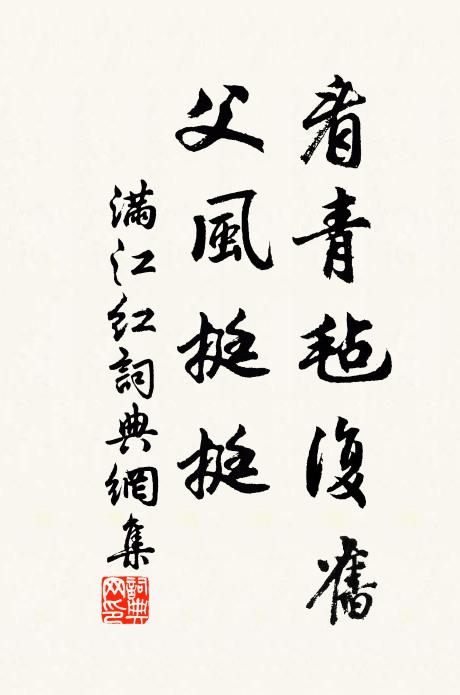 看青毡復舊
父風挺挺
滿江红詞典網集
詞典网印